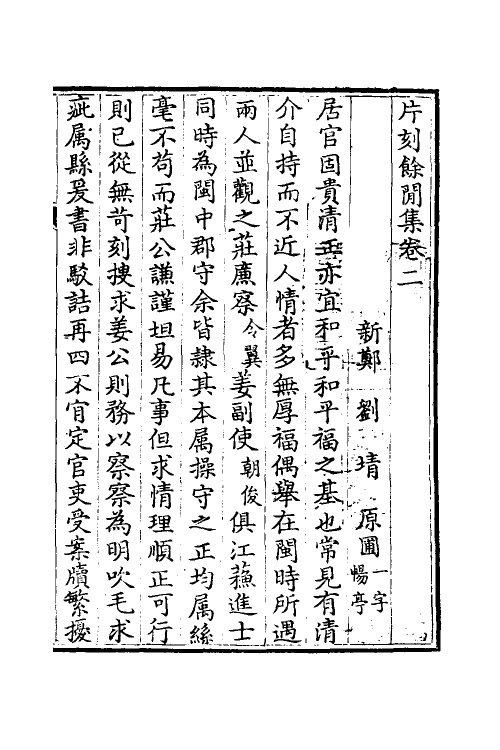 片刻餘閒集卷二
新鄭 劉 堉 原圃 一字暢亭
居官固貴清正亦宜和平和平福之基也常見有清
介自持而不近人情者多無厚福偶舉在閩時所遇
兩人並觀之莊廉察令翼姜副使朝俊俱江蘇進士
同時為閩中郡守余皆隸其本属操守之正均属絲
毫不苟而莊公謙謹坦易凡事但求情理順正可行
則已從無苛刻搜求姜公則務以察察為明吹毛求
疵属縣爰書非駁詰再四不肯定官吏受案牘繁擾